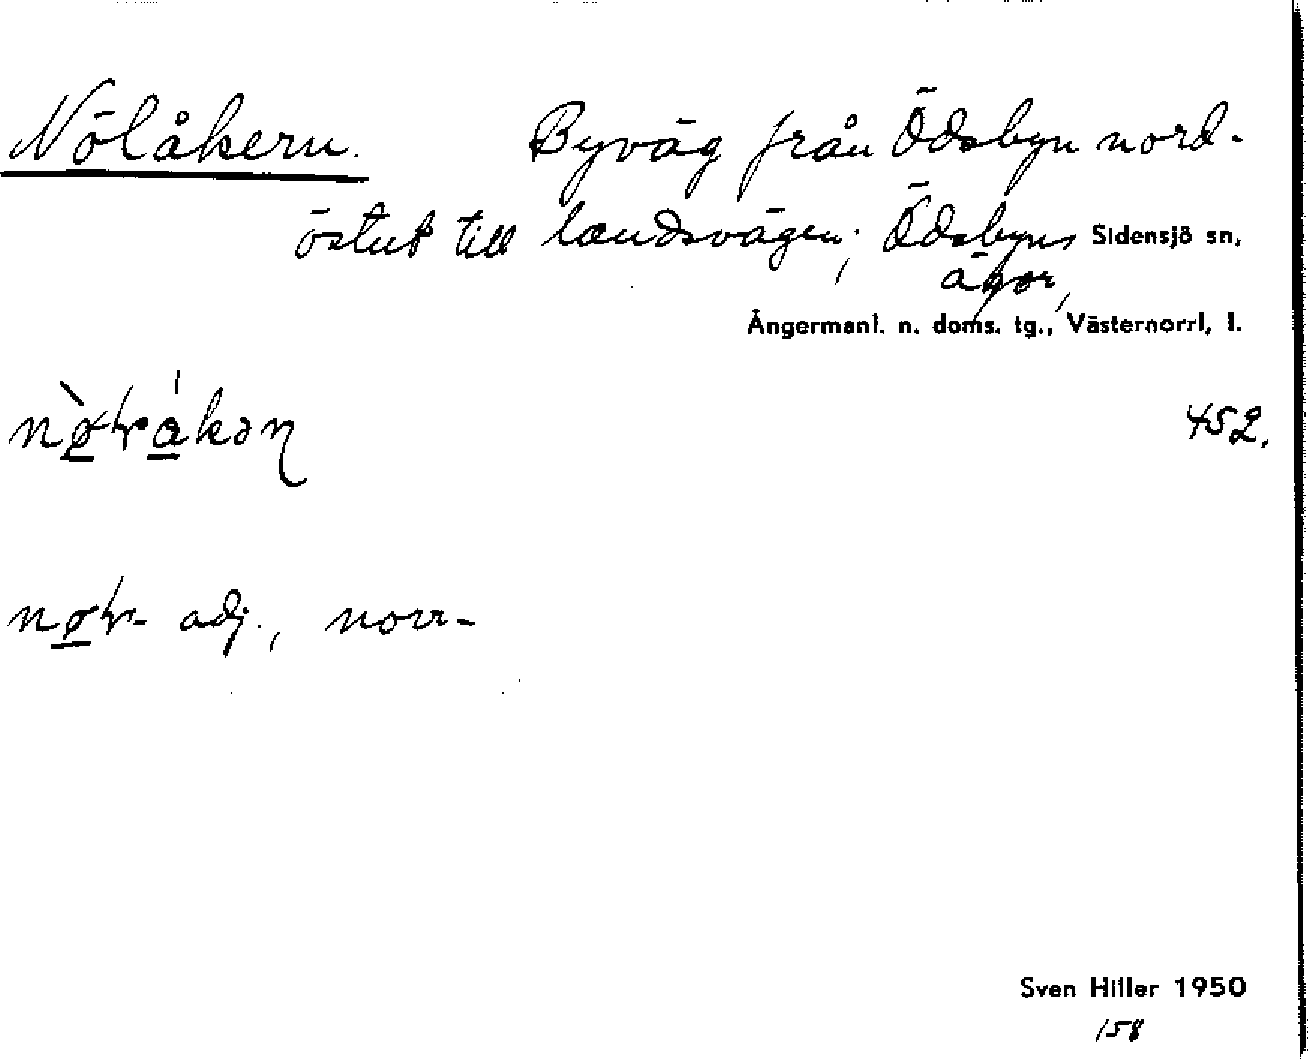 Nölåkern. Byväg från Ödsbyn nord-
östut till landsvägen; Ödsbyns Sidensjö sn,
ägor,
Ångermanl. n. doms. tg., Västernorrl, l.
452.
adj., norr-
Sven Hiller 1950
158